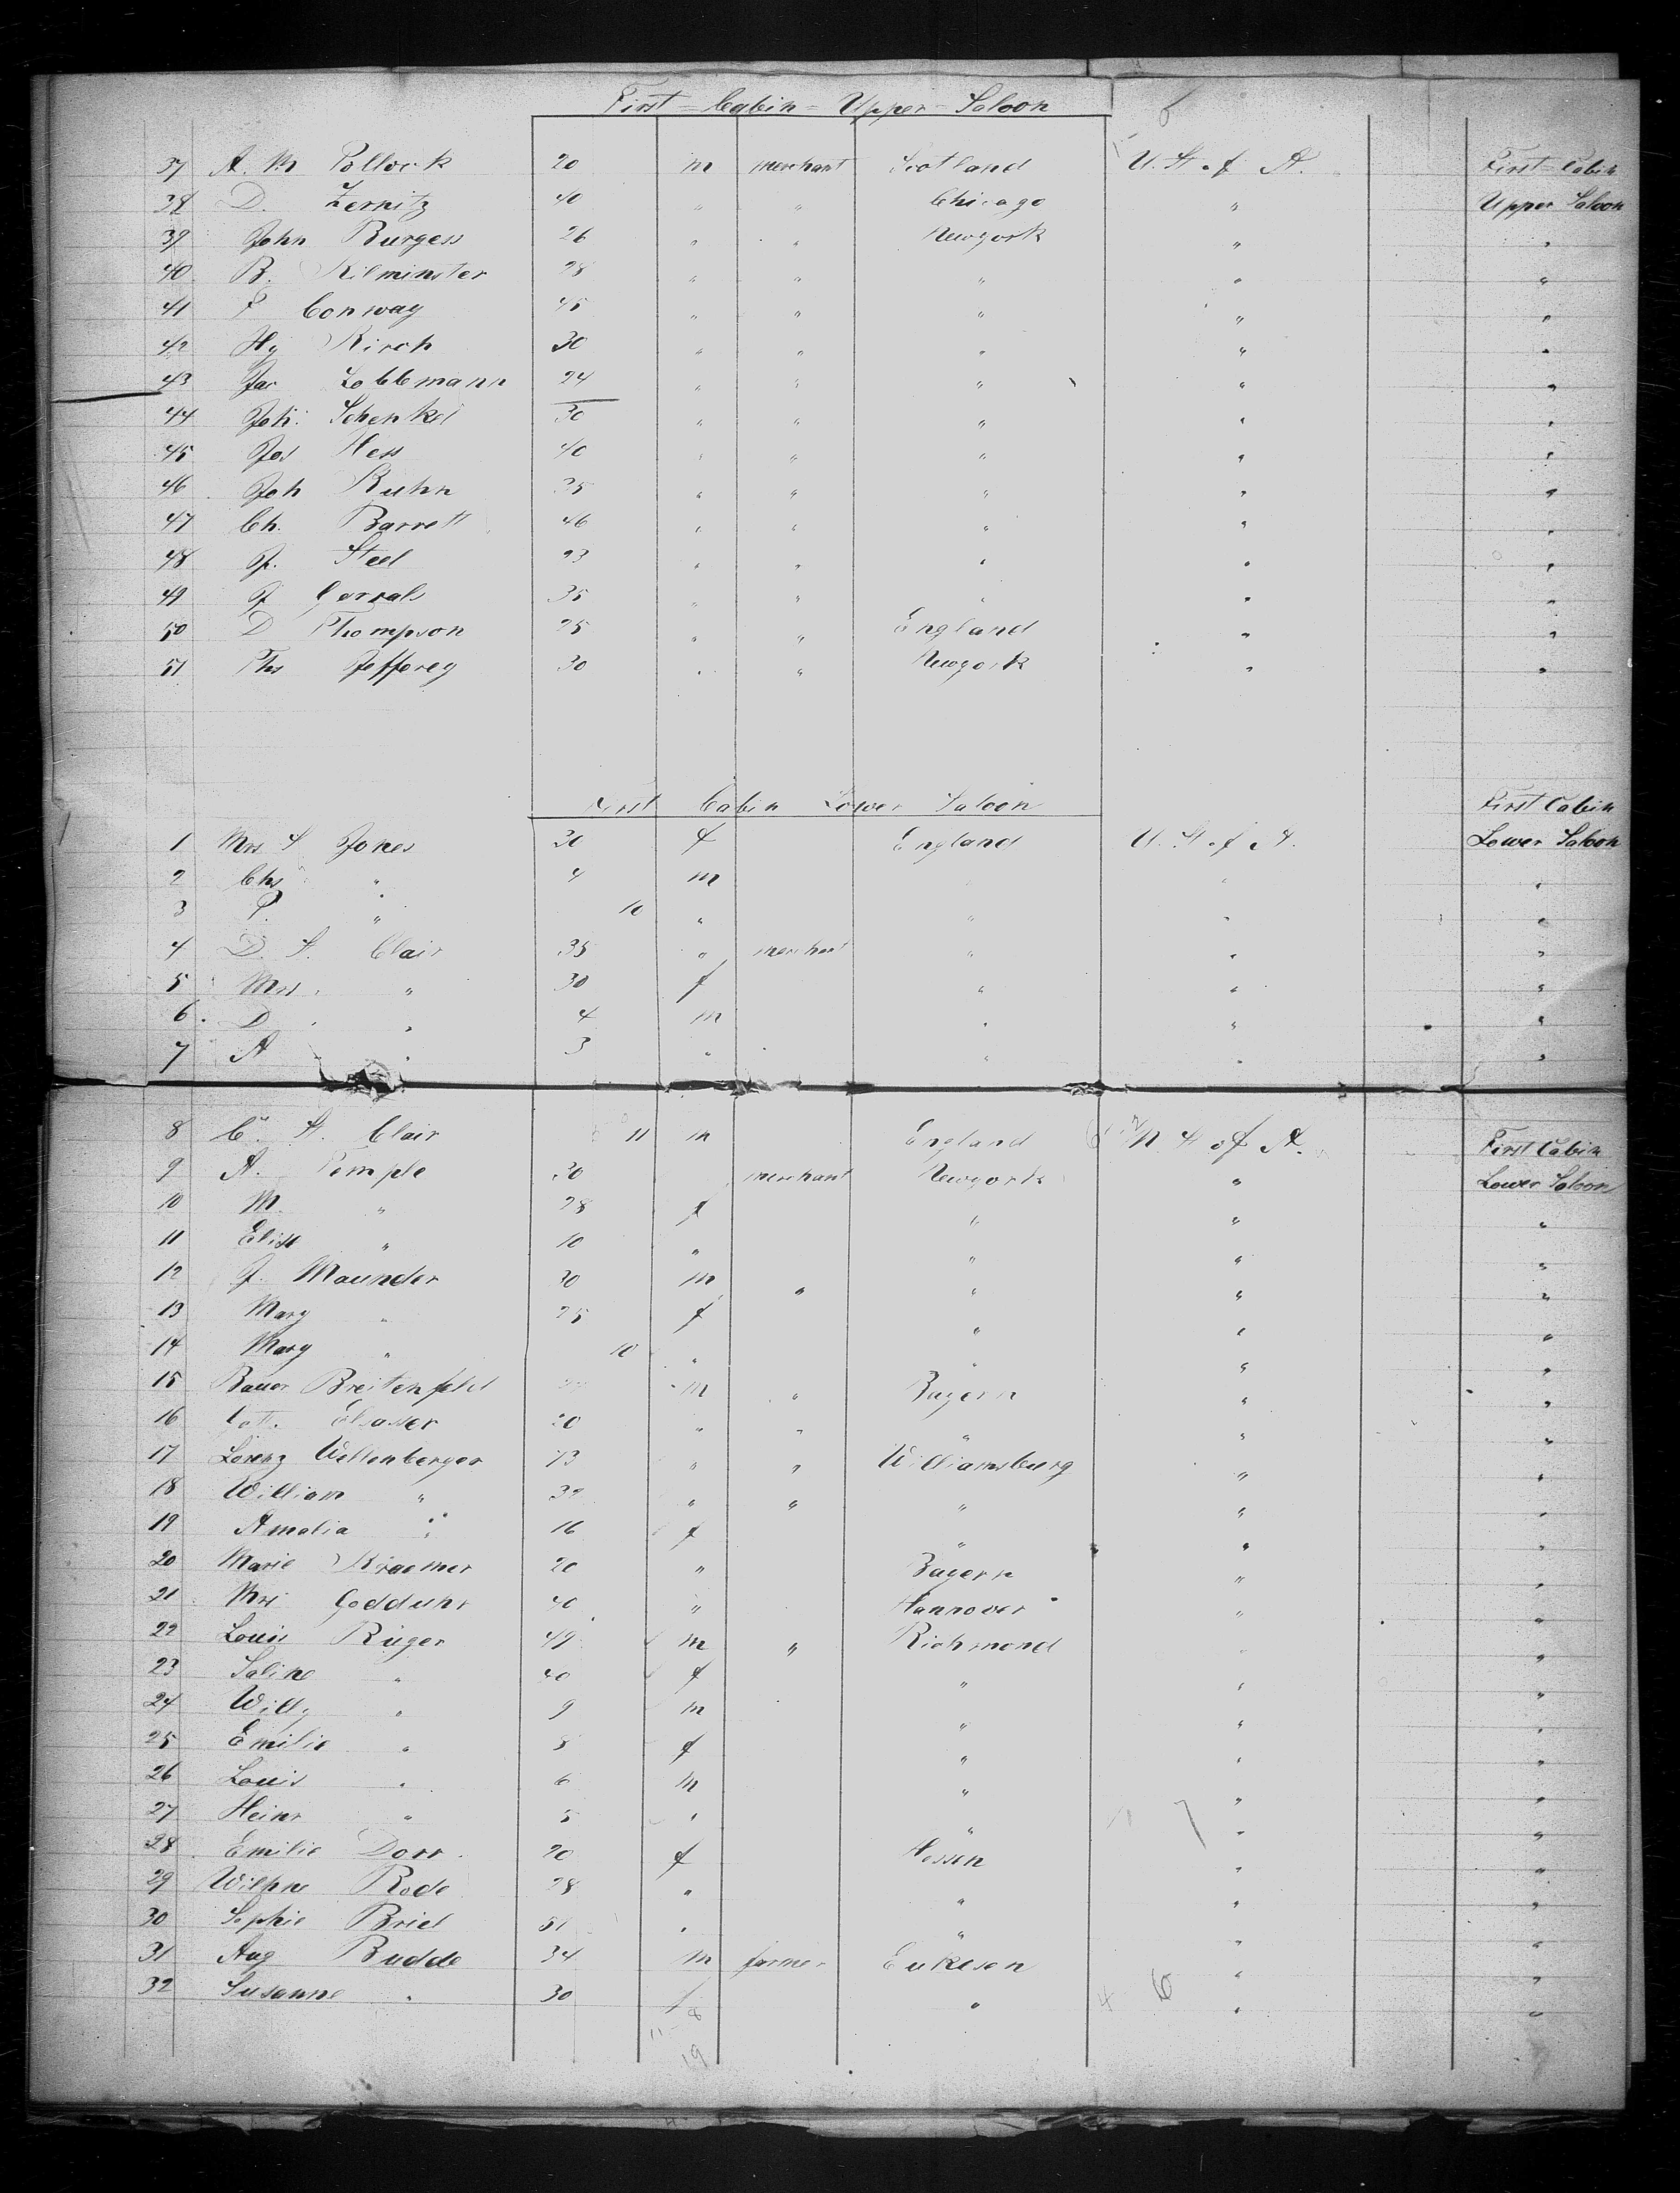 First = Cabin = Upper = Saloon
37 A. M Pollock 20 m merchant Scotland U. St. of A. First = Cabin
38 D. Zernitz 40 " " Chicago " Upper Saloon
39 John Burgess 26 " " Newyork " "
40 B. Kilminster 28 " " " " "
41 P Conway 45 " " " " "
42 Hy Kirch 30 " " " " "
43 Jac Lobbmann 24 " " " " "
44 Joh. Schenkel 30 " " " " "
45 Jos Hess 40 " " " " "
46 Joh Kuhn 35 " " " " "
47 Ch. Barrett 46 " " " " "
48 J. Steel 23 " " " " "
49 J 35 " " " " "
50 D Thompson 25 " " England " "
51 Ths Jefforey 30 " " Newyork " "
First Cabin Lower Saloon First Cabin
1 Mrs S Jones 30 f England U. St. of A. Lower Saloon
2 Chs " 4 m " "
3 P. " 10 " " " "
4 D. S. Clair 35 " merchant " " "
5 Mrs " 30 f " " "
6 D " 4 m " " "
7 A " 3 " " " "
8 C. S. Clair 11 m England U. St of A. First Cabin
9 A. Temple 30 merchant Newyork " Lower Saloon
10 M. " 28 f " " "
11 Elise " 10 " " " "
12 J. Maunder 30 m " " " "
13 Mary " 25 f " " "
14 Mary " 10 " " " "
15 Bauer Breitenfeld m " Bayern " "
16 Elsasser 20 " " " " "
17 Lorenz Wellenberger 73 " " Williamsburg " "
18 William " 32 " " " " "
19 Amalia " 16 f " " "
20 Marie Kraemer 20 " Bayern " "
21 Mrs Godduhr 40 " Hannover " "
22 Louis Rüger 49 m " Richmond " "
23 Saline " 40 f " " "
24 Willy " 9 m " " "
25 Emilie " 8 f " " "
26 Louis " 6 m " " "
27 Heinr " 5 " " " "
28 Emilie Dorr 20 f Hessen " "
29 Wilhne Rode 28 " " " "
30 Sophie Bried 51 " " " "
31 Aug Budde 34 m farmer Eukesen " "
32 Susanne " 30 f " " "
11 - 8
19